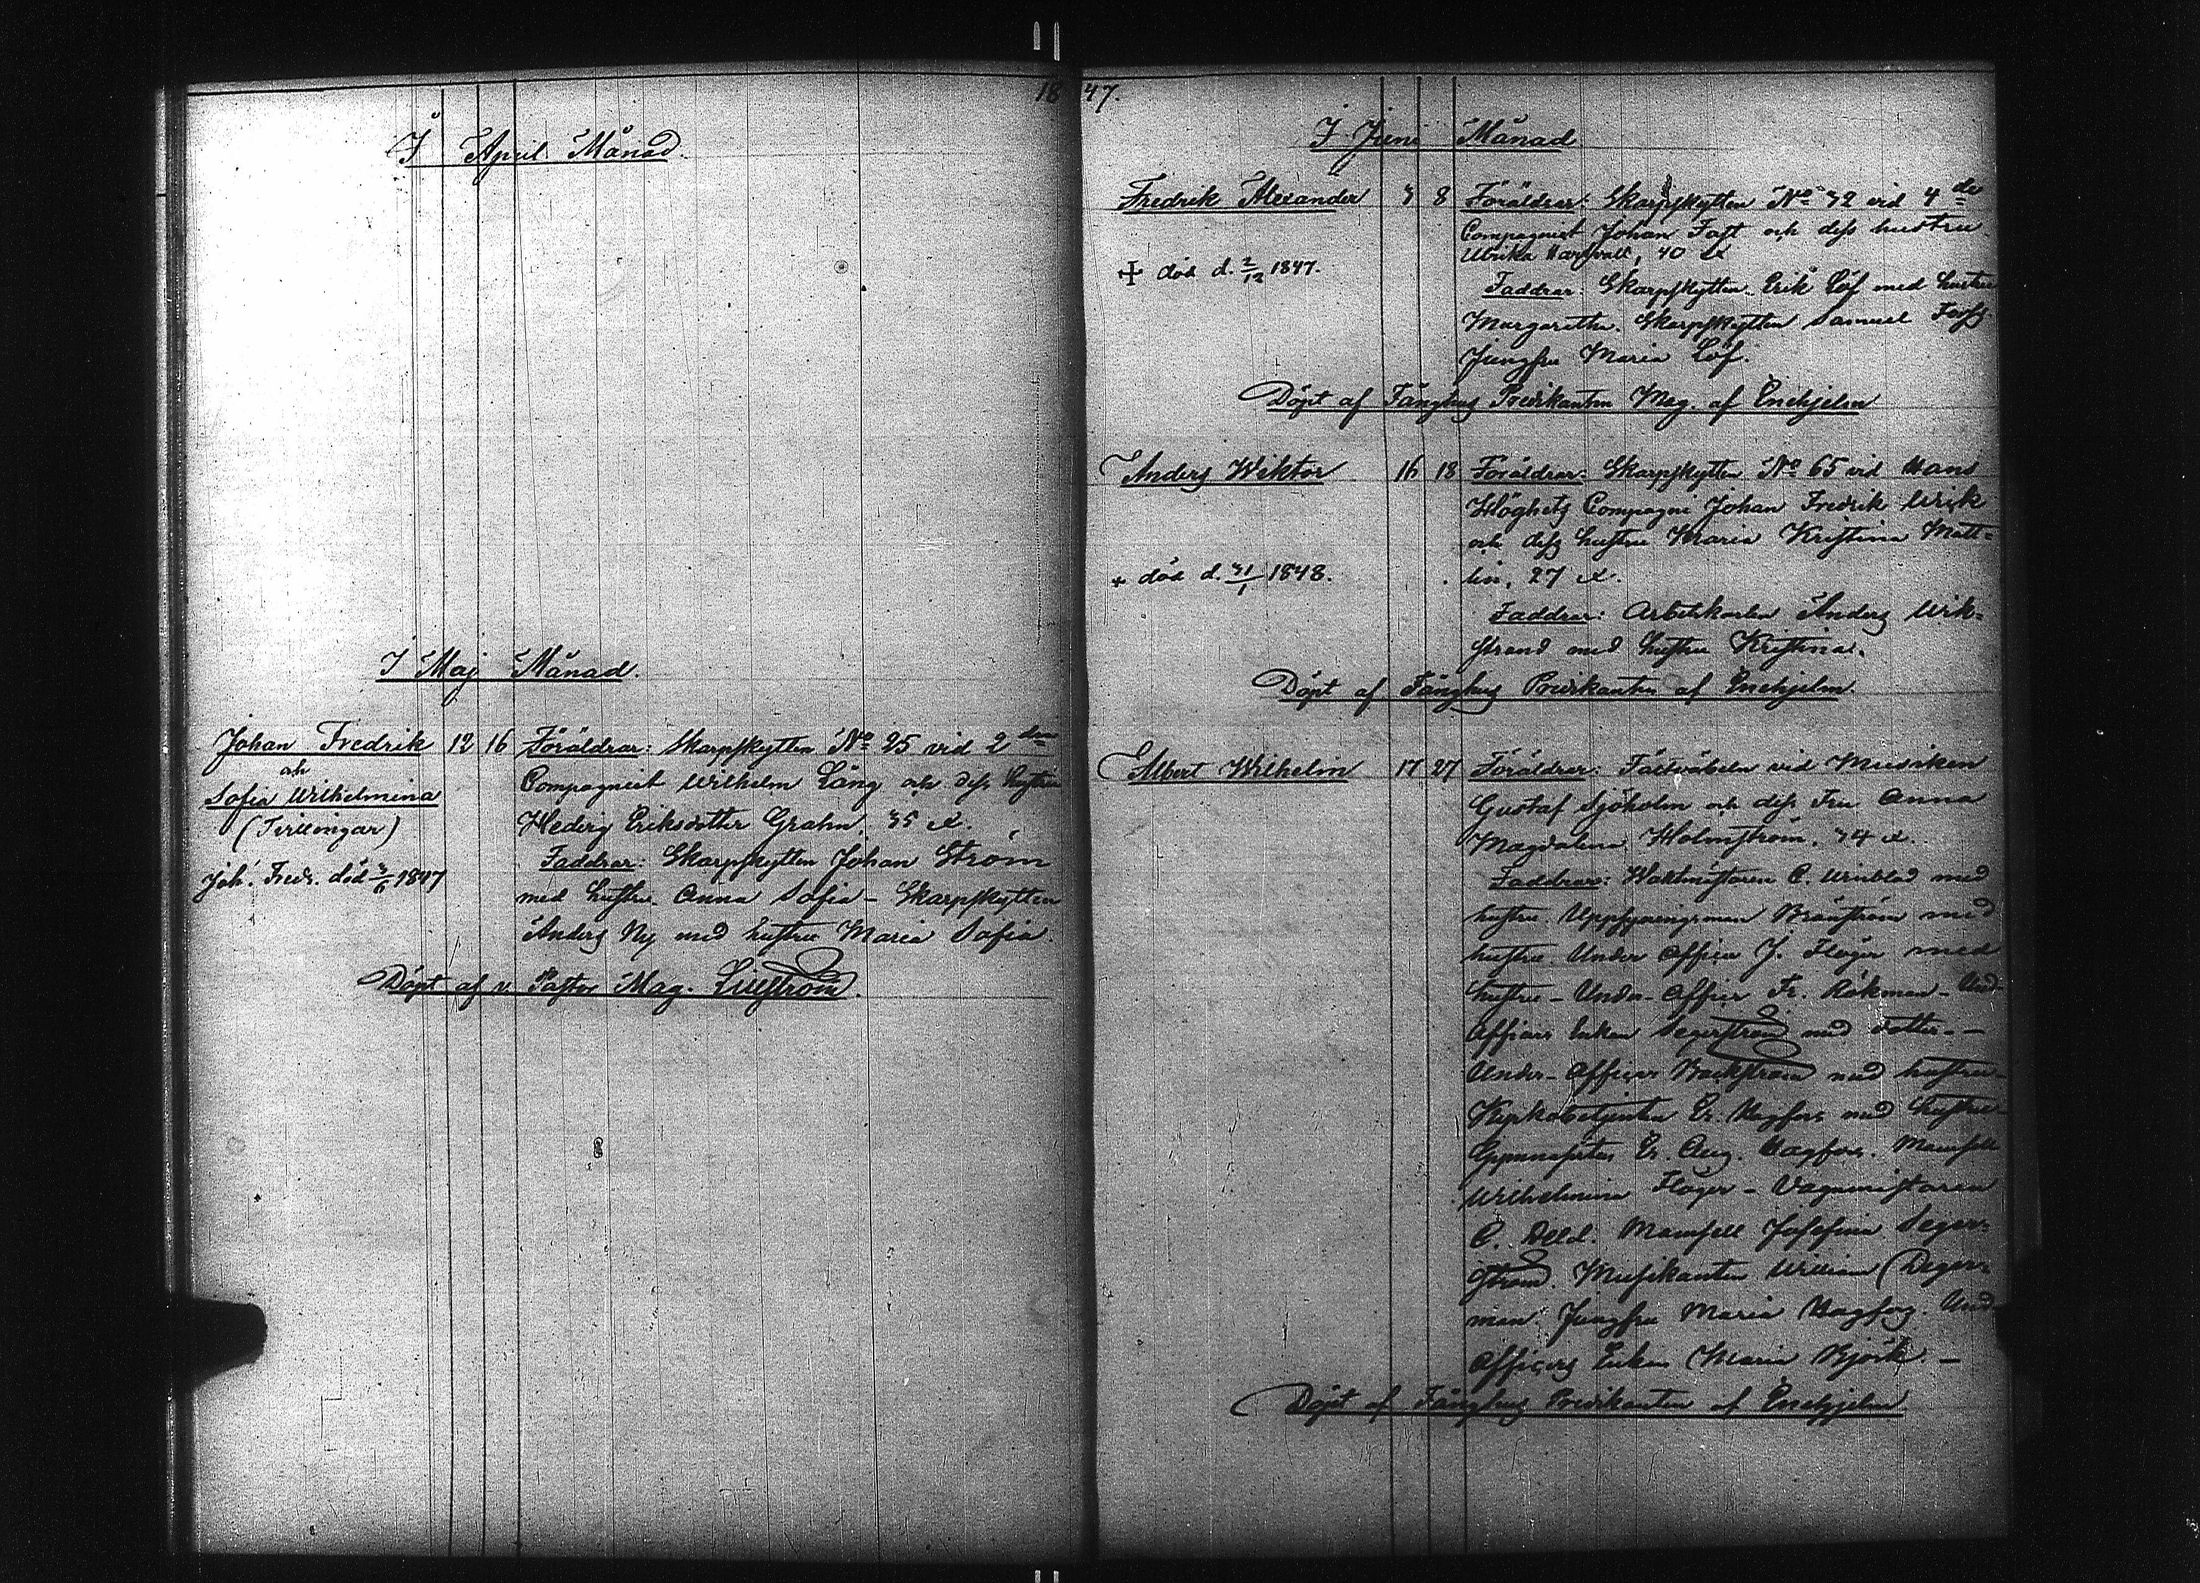 1847.
I April Månad.
I Maj Månad.
Johan Fredrik 12 16 Föräldrar: Skarpskytten No 25 vid 2den
och
Sofia Wilhelmina
(Tvillingar)
Joh. Fredr. död 3/6 1847
Compagniet Wilhelm Lång och dess hustru
Hedvig Eriksdotter Grahn, 35 år.
Faddrar: Skarpskytten Johan Ström
med hustru Anna Sofia - Skarpskytten
Anders Ny med hustru Maria Sofia.
Döpt af v. Pastor Mag. Liljeström.
I Juni Månad
Fredrik Alexander 3 8 Föräldrar: Skarpskytten No 32 vid 4de
Compagniet Johan Fast och dess hustru
Ulrika, 40 år
+ död d. 2/12 1847.
Faddrar: Skarpskytten Erik Löf med hustru
Margaretha. Skarpskytten Samuel
Jungfru Maria Löf.
Döpt af Fänghus Predikanten Mag. af Enehjelm
Anders Wiktor 16 18 Föräldrar: Skarpskytten No 65 vid Hans
Höghets Compagni Johan Fredrik Wik
och dess hustru Maria Kristina Matt-
lin, 27 år.
+ död d. 31/1 1848.
Faddrar: Arbetskarlen Anders Wik-
strand med hustru Kristina.
Döpt af Fänghus Predikanten af Enehjelm.
Albert Wilhelm 17 27 Föräldrar: Fältväbeln vid Musiken
Gustaf Sjöholm och dess Fru Anna
Magdalena Holmström, 34 år.
Faddrar: Waktmästaren C. Winblad med
hustru. Uppsyningsman Brännström med
hustru. Under Officer J. Flöjer med
hustru - Under-Officer Fr. Rökman - Und.
Officers Enkan Segerström med dotter -
Under-Officer Backström med hustru -
Er. Hagfors med hustru -
Gymnasisten Er. Aug. Hagfors. Mamsell
Wilhelmina Flöjer - Vagnmästaren
C. Mamsell Josefina Seger-
ström. Musikanten William Deger-
man. Jungfru Maria Hagfors. Und.
Officers Enkan Maria Björk. -
Döpt af Fänghus Predikanten af Enehjelm